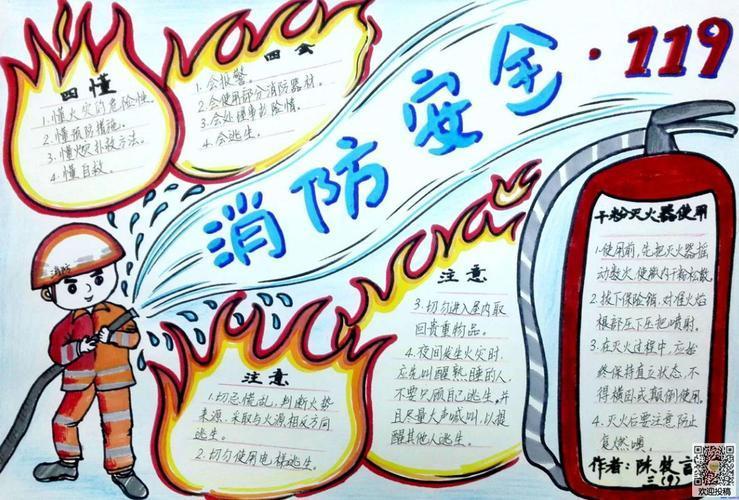 消防安全·119
四懂
1.懂火灾的危险性。
2.懂预防措施。
3.懂火灾扑救方法。
4.懂自救。
四会
1.会报警。
2.会使用部分消防器材。
3.会处理事故险情。
4.会逃生。
消防
注意
1.切忌慌乱,判断火势
来源,采取与火源相反方向
逃生。
2.切勿使用电梯逃生。
注意
3.切勿进入屋内取
回贵重物品。
4.夜间发生火灾时,
应先叫醒熟睡的人,
不要只顾自己逃生。并
且尽量大声喊叫,以提
醒其他人逃生。
干粉灭火器使用
1.使用前,先把灭火器摇
动数次,使瓶内干粉松散。
2.拔下保险销,对准火焰
根部压下压把喷射。
3.在灭火过程中,应始
终保持直立状态,不
得横卧或颠倒使用。
4.灭火后要注意防止
复燃噢。
作者:陈牧言
三(9)
欢迎投稿